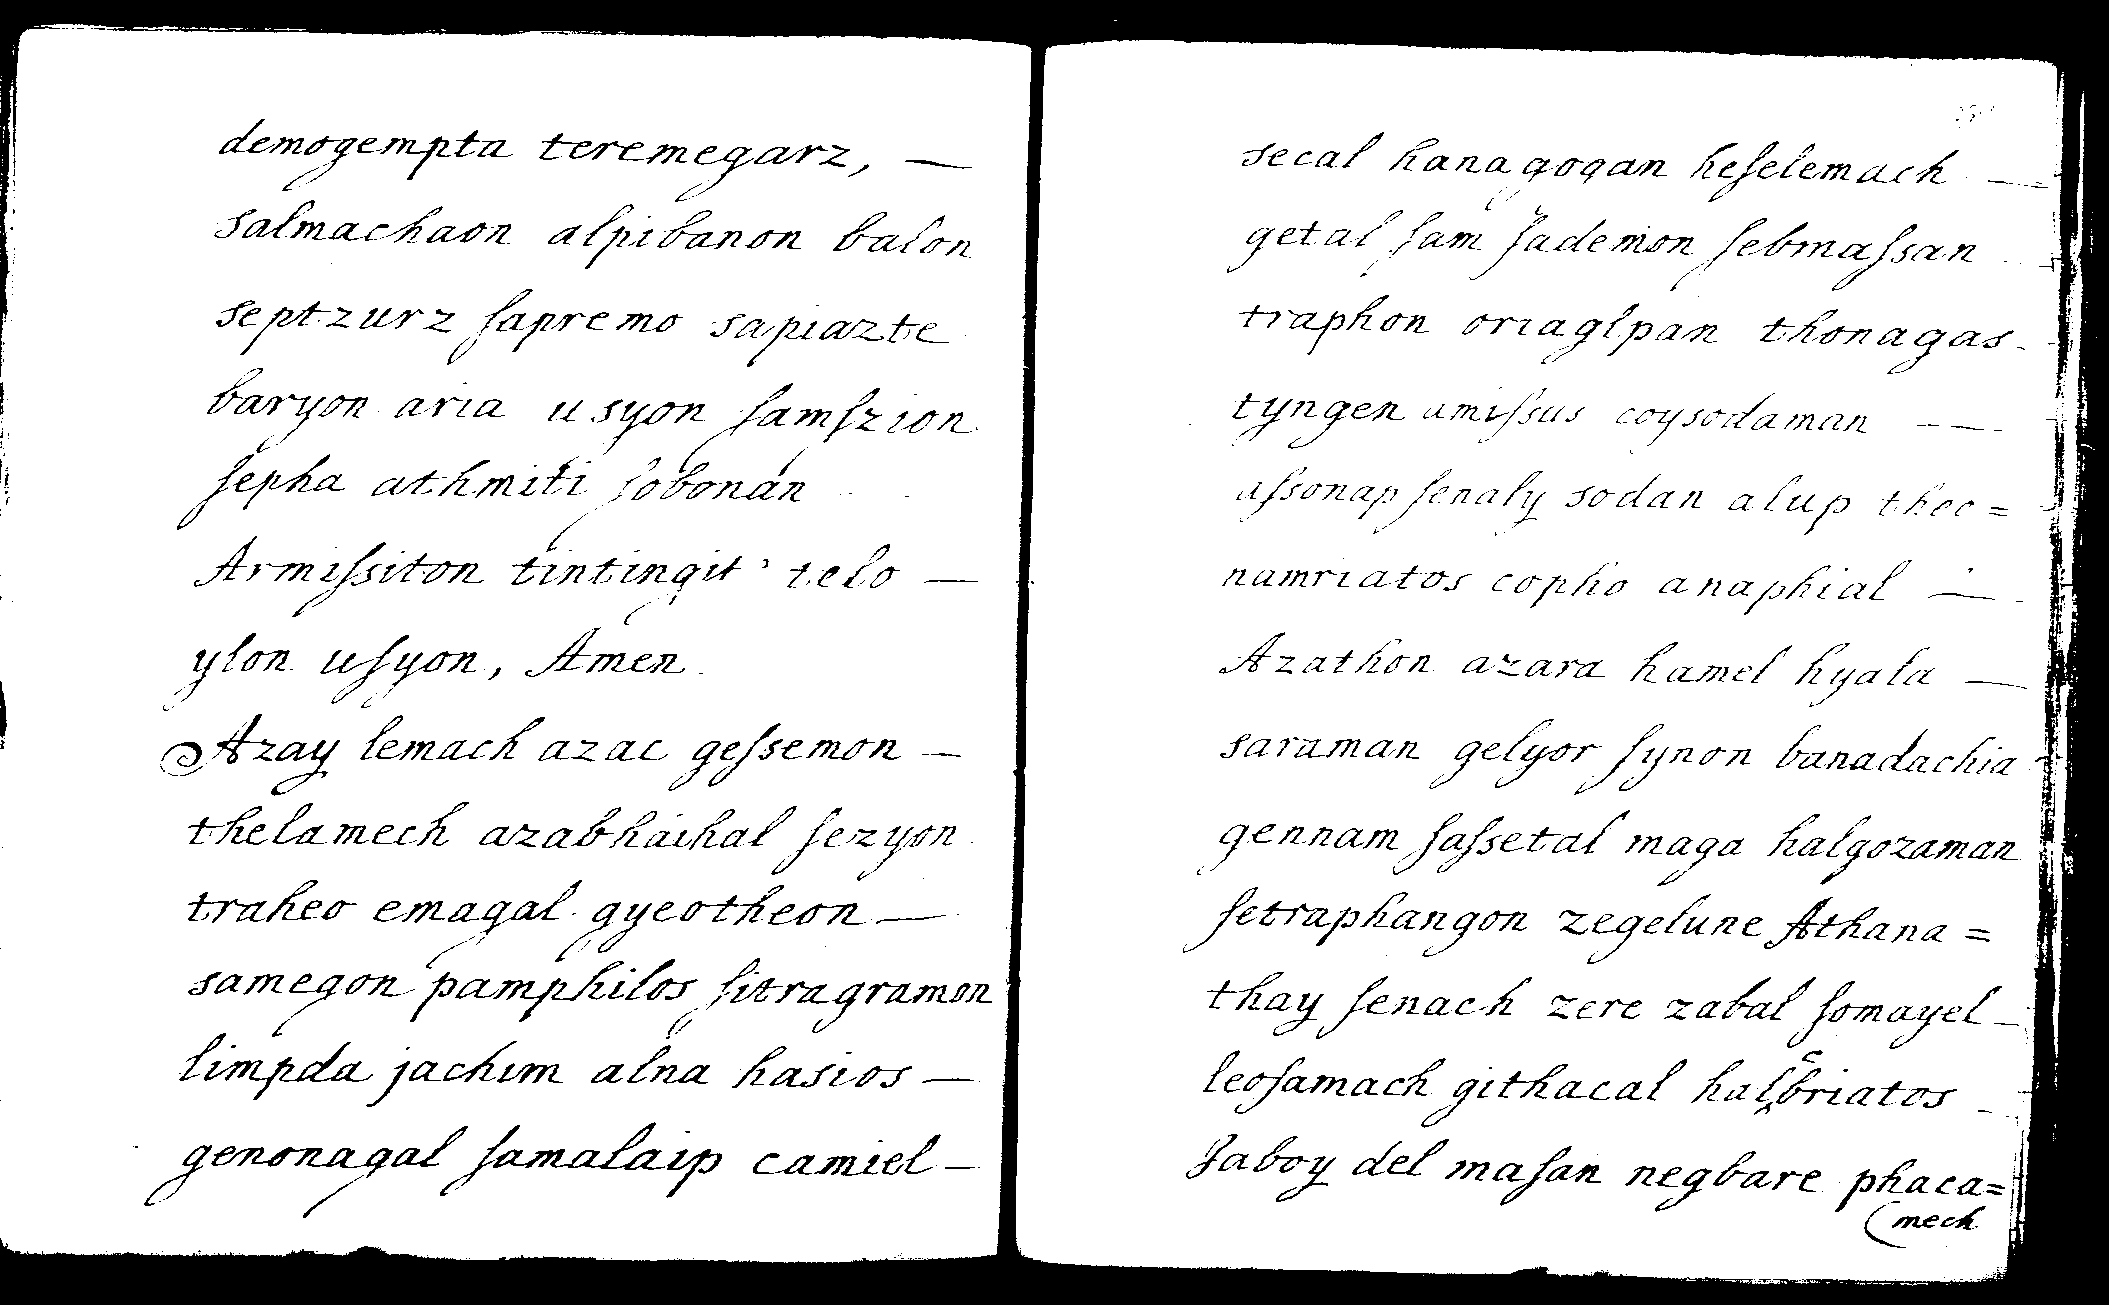 demogempta teremegarz, —
salmachaon alpibanon balon
septzurz ſapremo sapiazte
baryon aria usyon ſamſzion
ſepha athmiti ſobonan
Armiſsiton tintingit telo —
ylon uſyon, Amen.
Azay lemach azac geſsemon —
thelamech azabhaihal ſezyon
traheo emagal gyeotheon —
samegon pamphilos ſitragramon
limpda jachim alna hasios —
genonagal ſamalaip camiel —
secal hanagogan heſelemach —
getal ſam ſademon ſebmaſsan
traphon oriaglpan thonagas
tyngen amiſsus coysodaman —
aſsonap ſenaly sodan alup theo=
namriatos copho anaphial —
Azathon azara hamel hyala —
saraman gelyor ſynon banadachia
gennam ſaſsetal maga halgozaman
ſetraphangon zegelune Athana=
thay ſenach zere zabal ſomayel
leoſamach githacal halebriatos
Jaboy del maſan negbare phaca=
mech